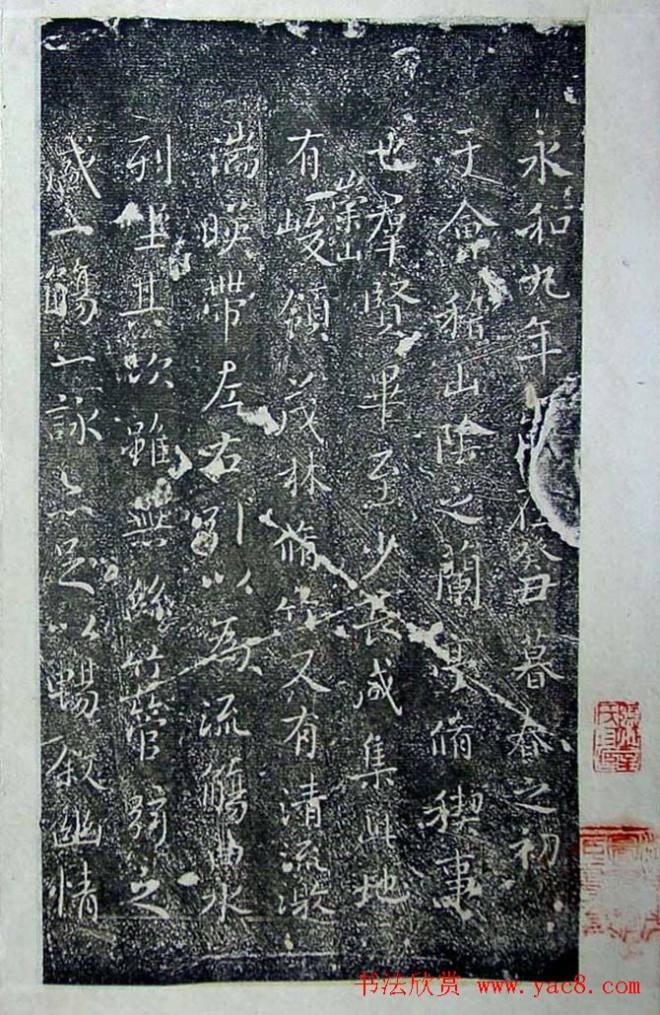 永和九年在癸丑暮春之初
于會稽山陰之蘭亭脩稧事
也羣賢畢至少長咸集此地
有崇山峻領茂林脩竹又有清流激
湍暎帶左右引以爲流觴曲水
列坐其次雖無絲竹管弦之
盛一觴一詠亦足以暢叙幽情
书法欣赏 www.yac8.com